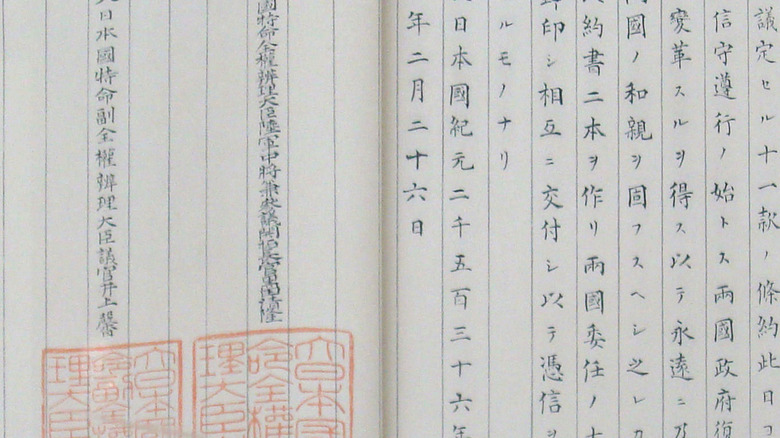 議定セル十一款ノ條約此日ヨ
信守遵行ノ始トス兩國政府復
變革スルヲ得ス以テ永遠ニ
國ノ和親ヲ固フスヘシ之レカ
約書二本ヲ作リ兩國委任ノ
印シ相互ニ交付シ以テ憑信ヲ
ルモノナリ
日本國紀元二千五百三十六年
年二月二十六日
國特命全權辨理大臣陸軍中將兼參議開拓長官黒田清隆
日本國特命副全權辨理大臣議官井上馨
大日本國
命全權
理大臣
大日本國
命副全權
理大臣